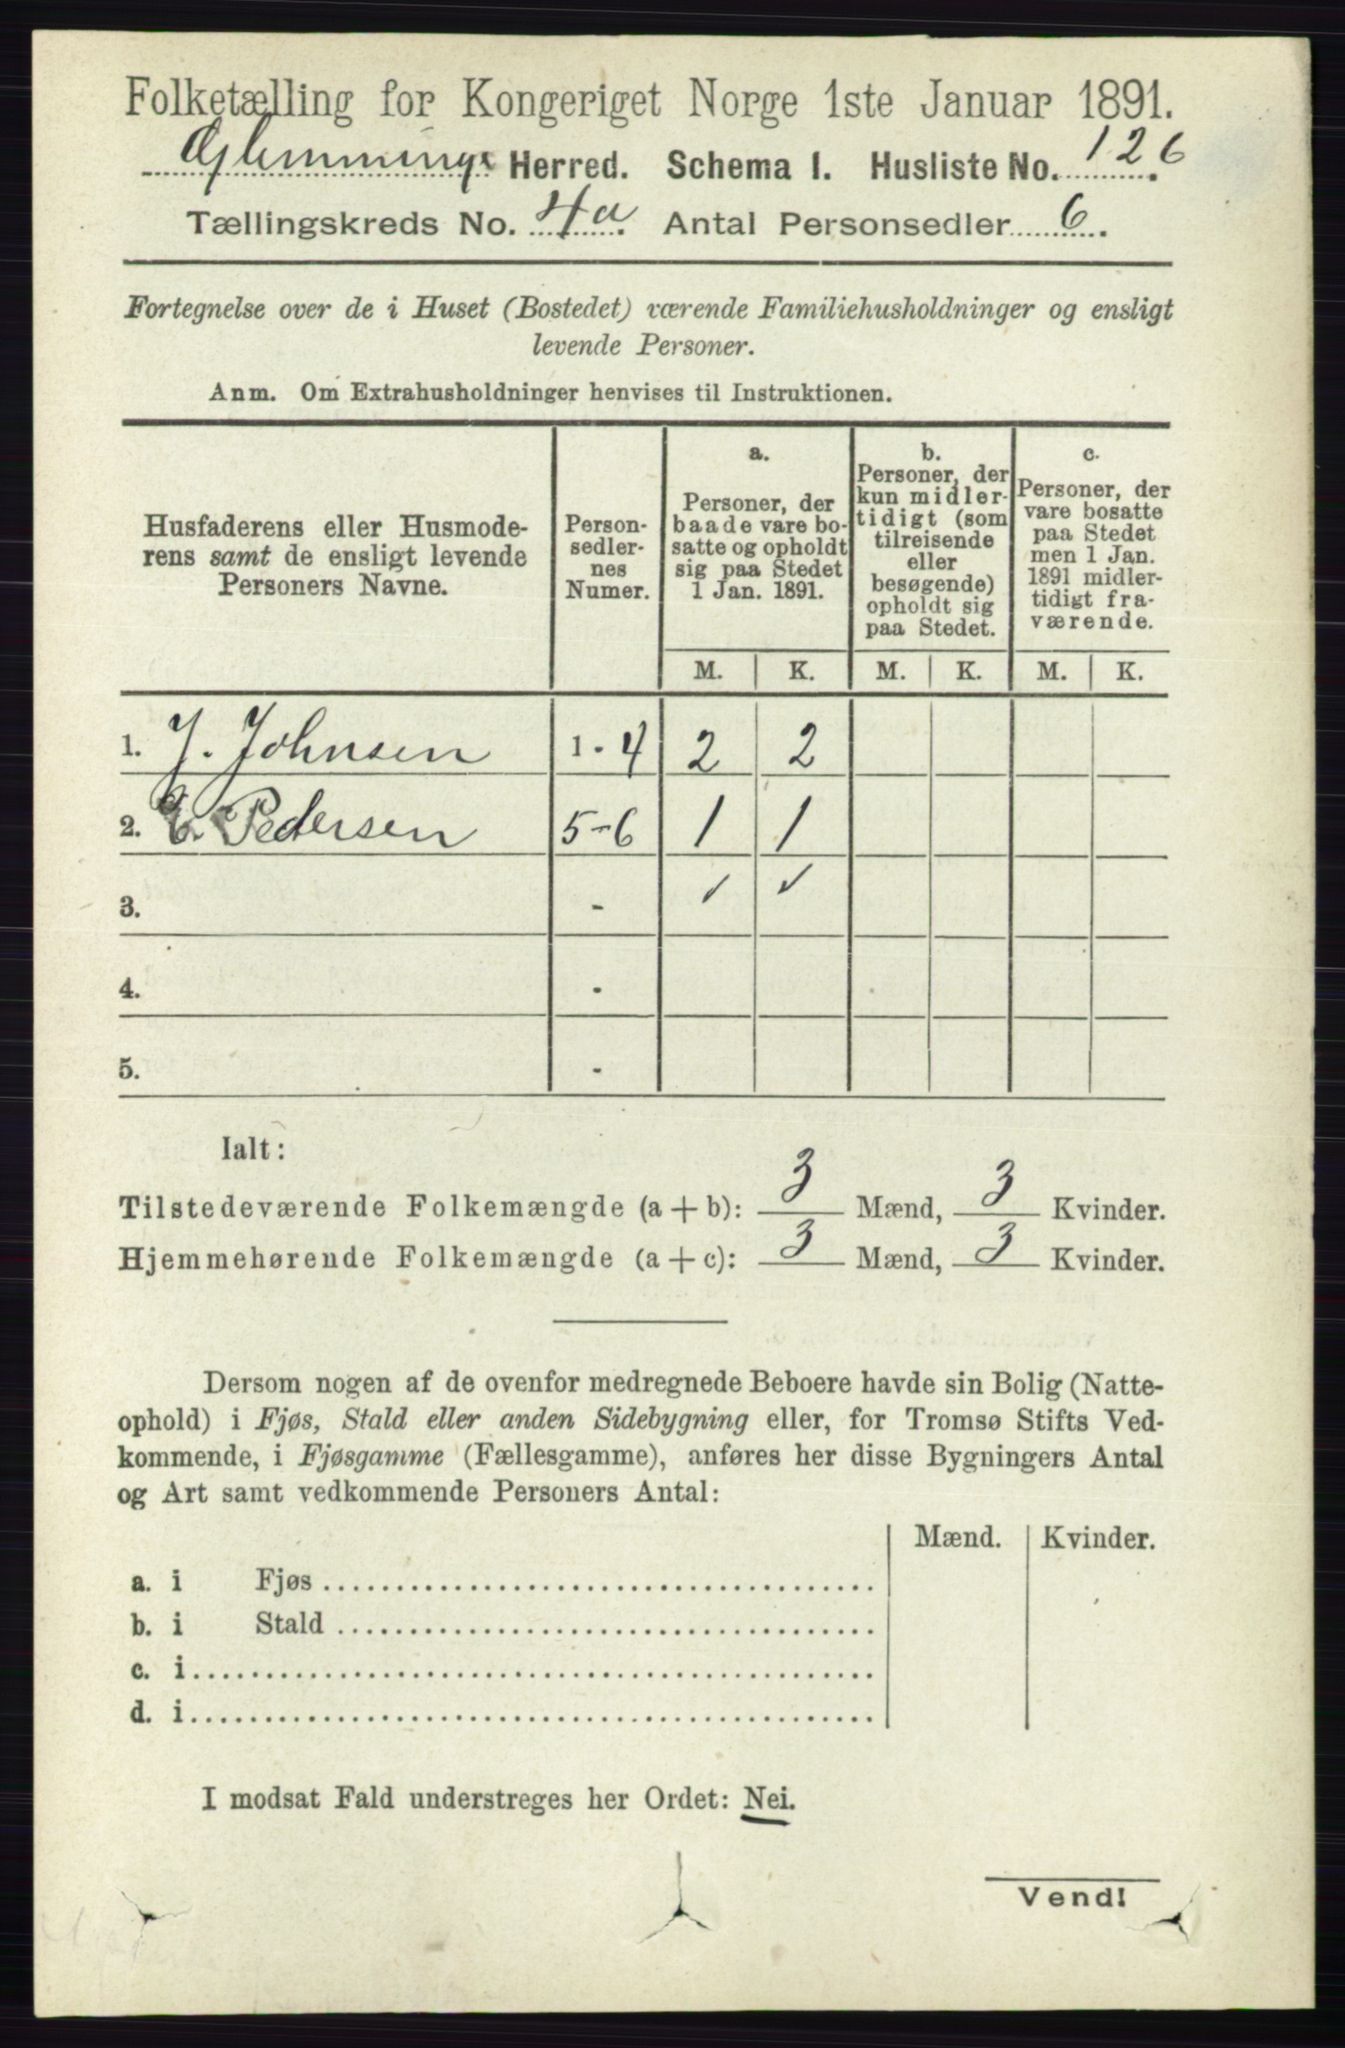 Folketælling for Kongeriget Norge 1ste Januar 1891.
Glemminge Herred. Schema I. Husliste No. 126.
Tællingskreds No. 4a. Antal Personsedler 6.
Fortegnelse over de i Huset (Bostedet) værende Familiehusholdninger og ensligt
levende Personer.
Anm. Om Extrahusholdninger henvises til Instruktionen.
Husfaderens eller Husmode-
rens samt de ensligt levende
Personers Navne.
Person-
sedler-
nes
Numer.
a.
Personer, der
baade vare bo-
satte og opholdt
sig paa Stedet
1 Jan. 1891.
b.
Personer, der
kun midler-
tidigt (som
tilreisende
eller
besøgende)
opholdt sig
paa Stedet.
c.
Personer, der
vare bosatte
paa Stedet
men 1 Jan.
1891 midler-
tidigt fra-
værende.
M. K. M. K. M. K.
1. J. Johnsen 1 - 4 2 2
2. E. Pedersen 5-6 1 1
3. - ✓ ✓
4. -
5. -
Ialt:
Tilstedeværende Folkemængde (a + b): 3 Mænd, 3 Kvinder.
Hjemmehørende Folkemængde (a + c): 3 Mænd, 3 Kvinder.
Dersom nogen af de ovenfor medregnede Beboere havde sin Bolig (Natte-
ophold) i Fjøs, Stald eller anden Sidebygning eller, for Tromsø Stifts Ved-
kommende, i Fjøsgamme (Fællesgamme), anføres her disse Bygningers Antal
og Art samt vedkommende Personers Antal:
Mænd. Kvinder.
a. i Fjøs
b. i Stald
c. i
d. i
I modsat Fald understreges her Ordet: Nei.
Vend!